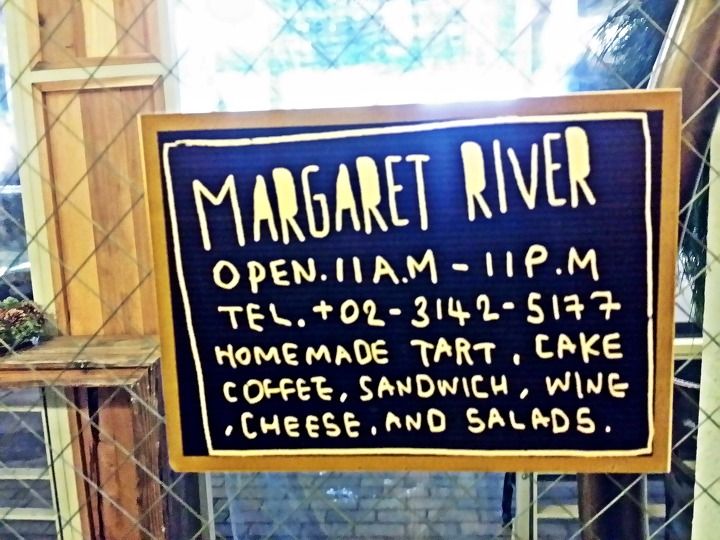 MARGARET RIVER
OPEN.11A.M - 11P.M
TEL.+02-3142-5177
HOMEMADE TART , CAKE
COFFEE, SANDWICH, WINE
,CHEESE,AND SALADS.